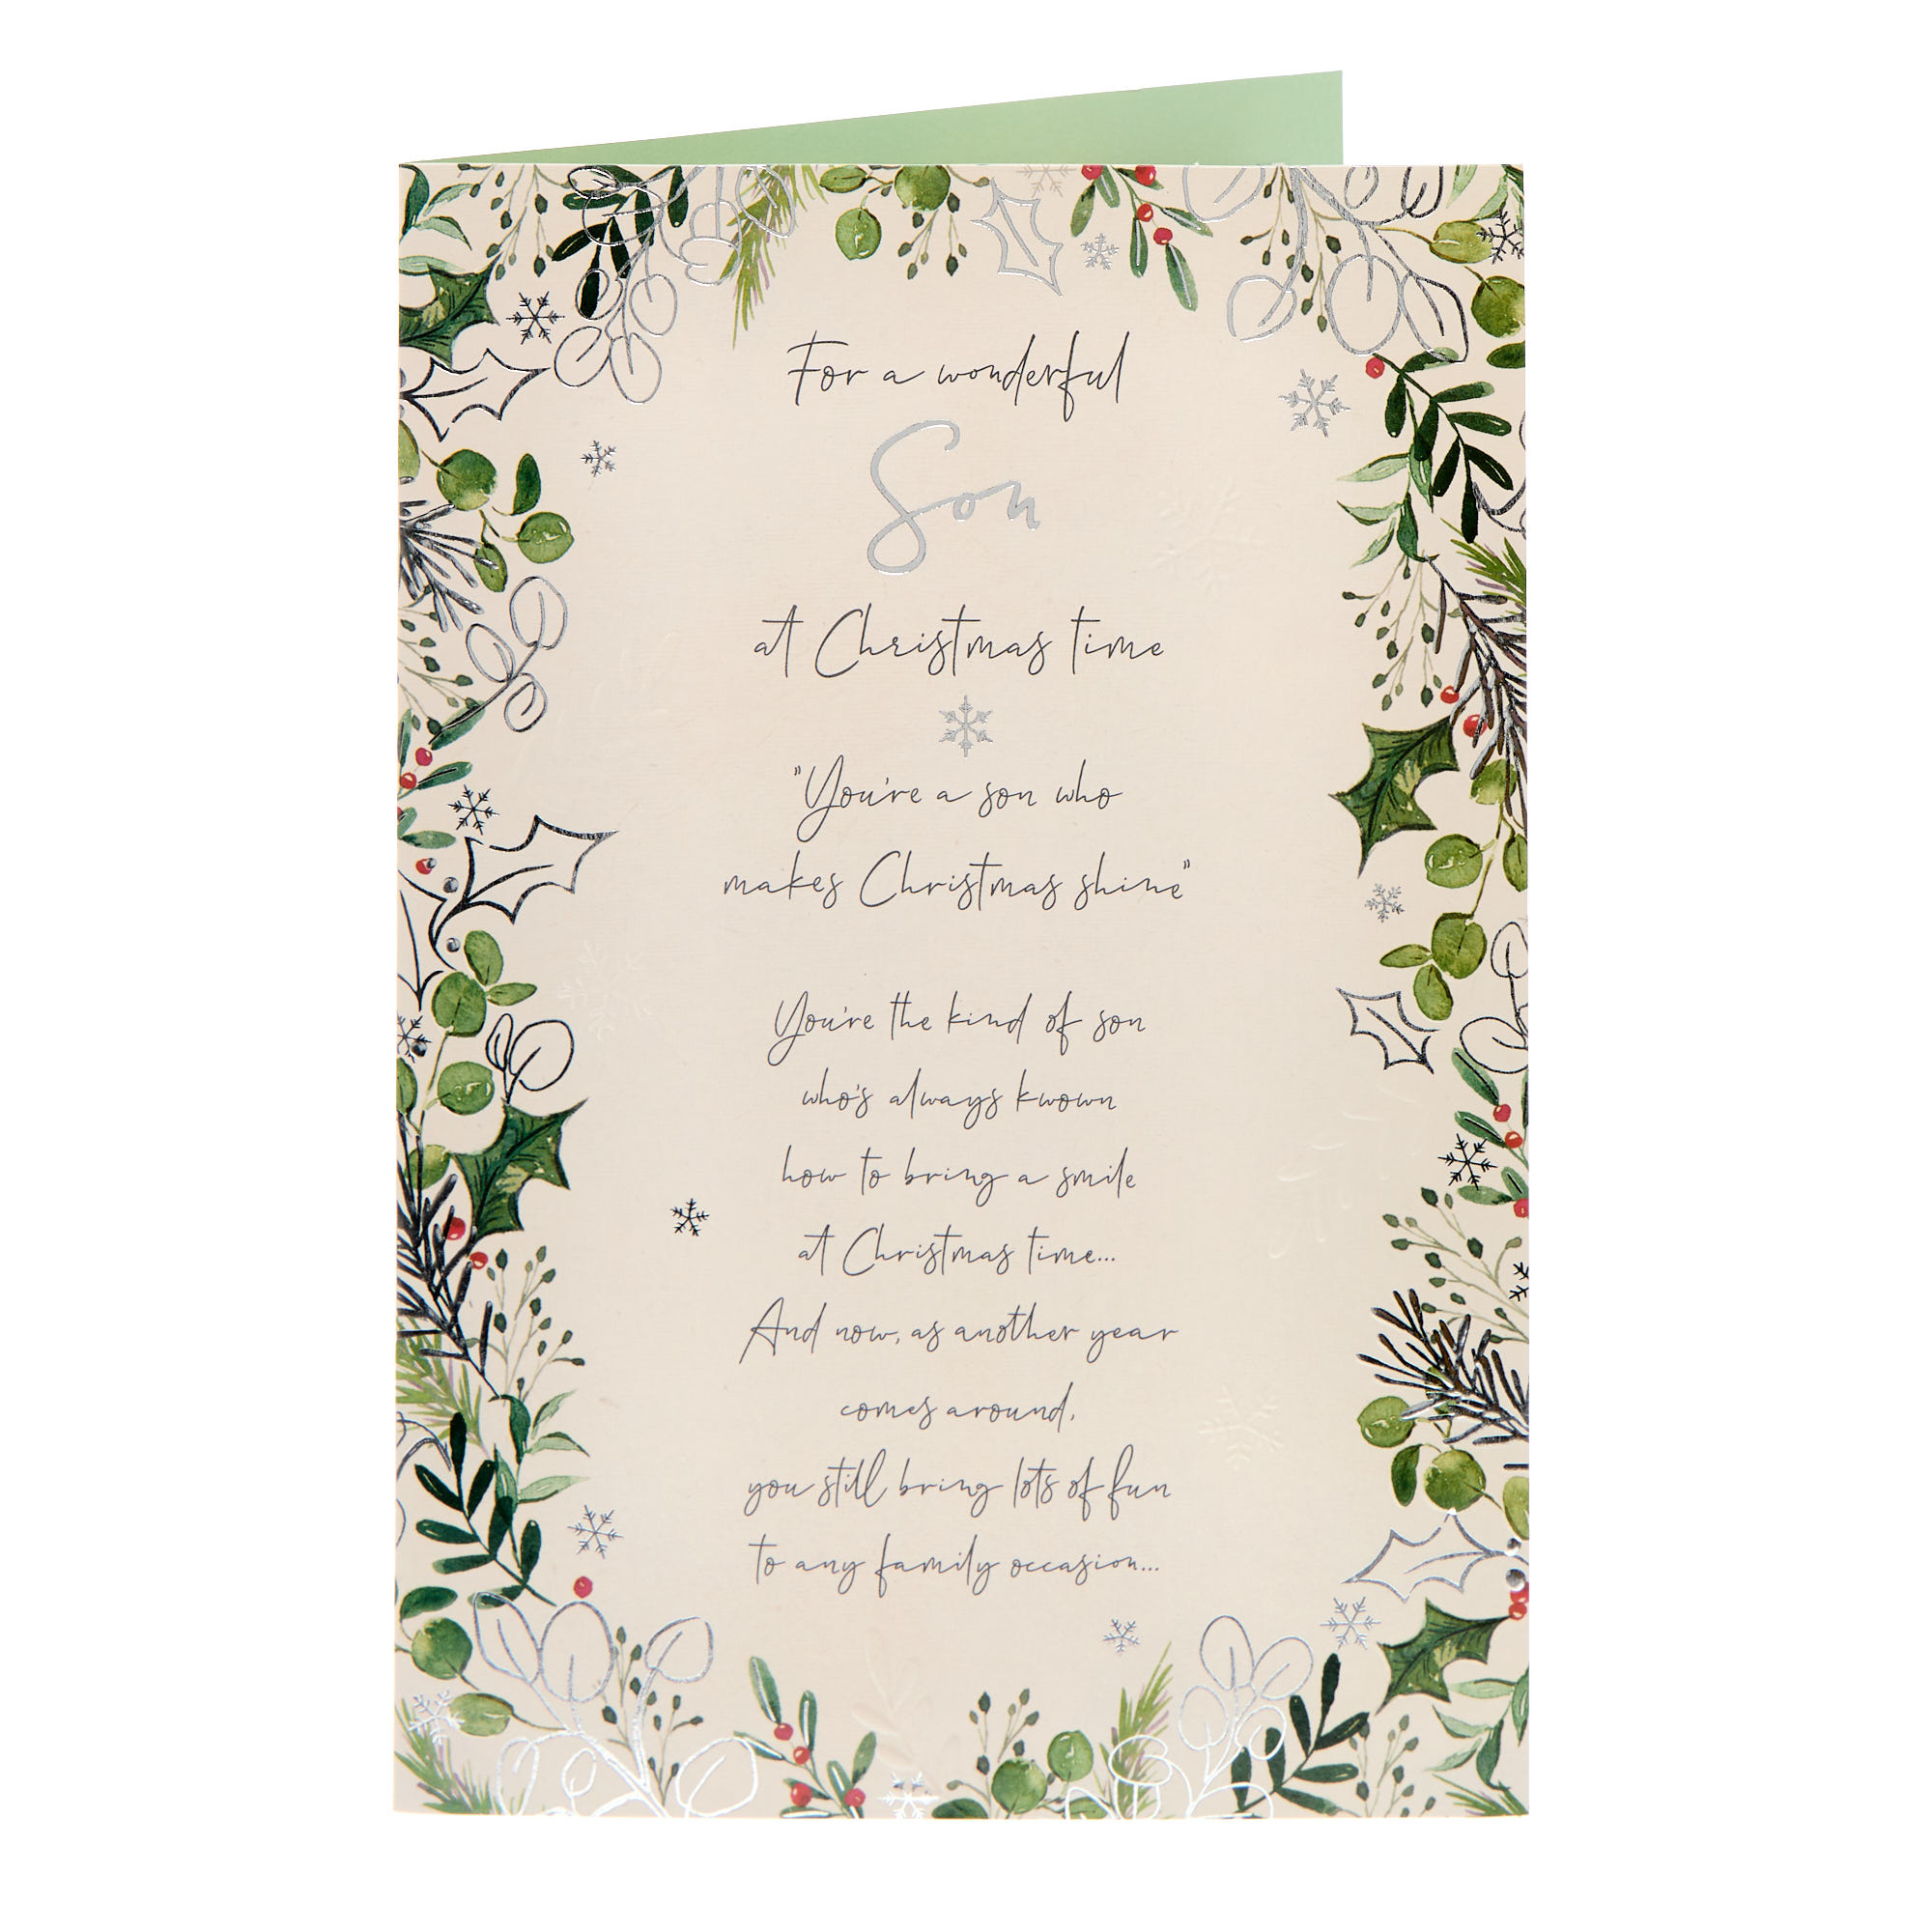 For a wonderful
Son
at Christmas time
"You're a son who
makes Christmas shine"
You're the kind of son
who's always known
how to bring a smile
at Christmas time...
And now, as another year
comes around,
you still bring lots of fun
to any family occasion...